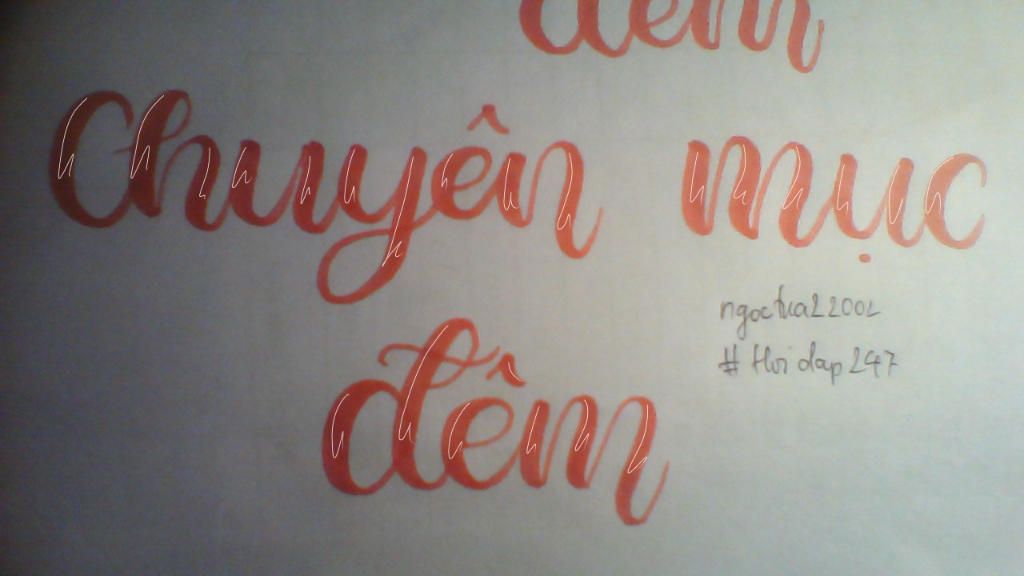 đêm
Chuyên mục
đêm
ngoctua22002
# Hoidap247